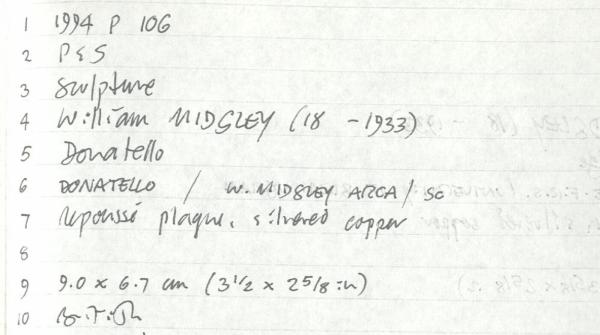 1 1994 P 106
2 P & S
3 Sculpture
4 William MIDGLEY (18 -1933)
5 Donatello
6 DONATELLO / W. MIDGLEY ARCA / SC
7 repoussé plaque, silvered copper
8
9 9.0 x 6.7 cm (3 1/2 x 2 5/8 in)
10 British